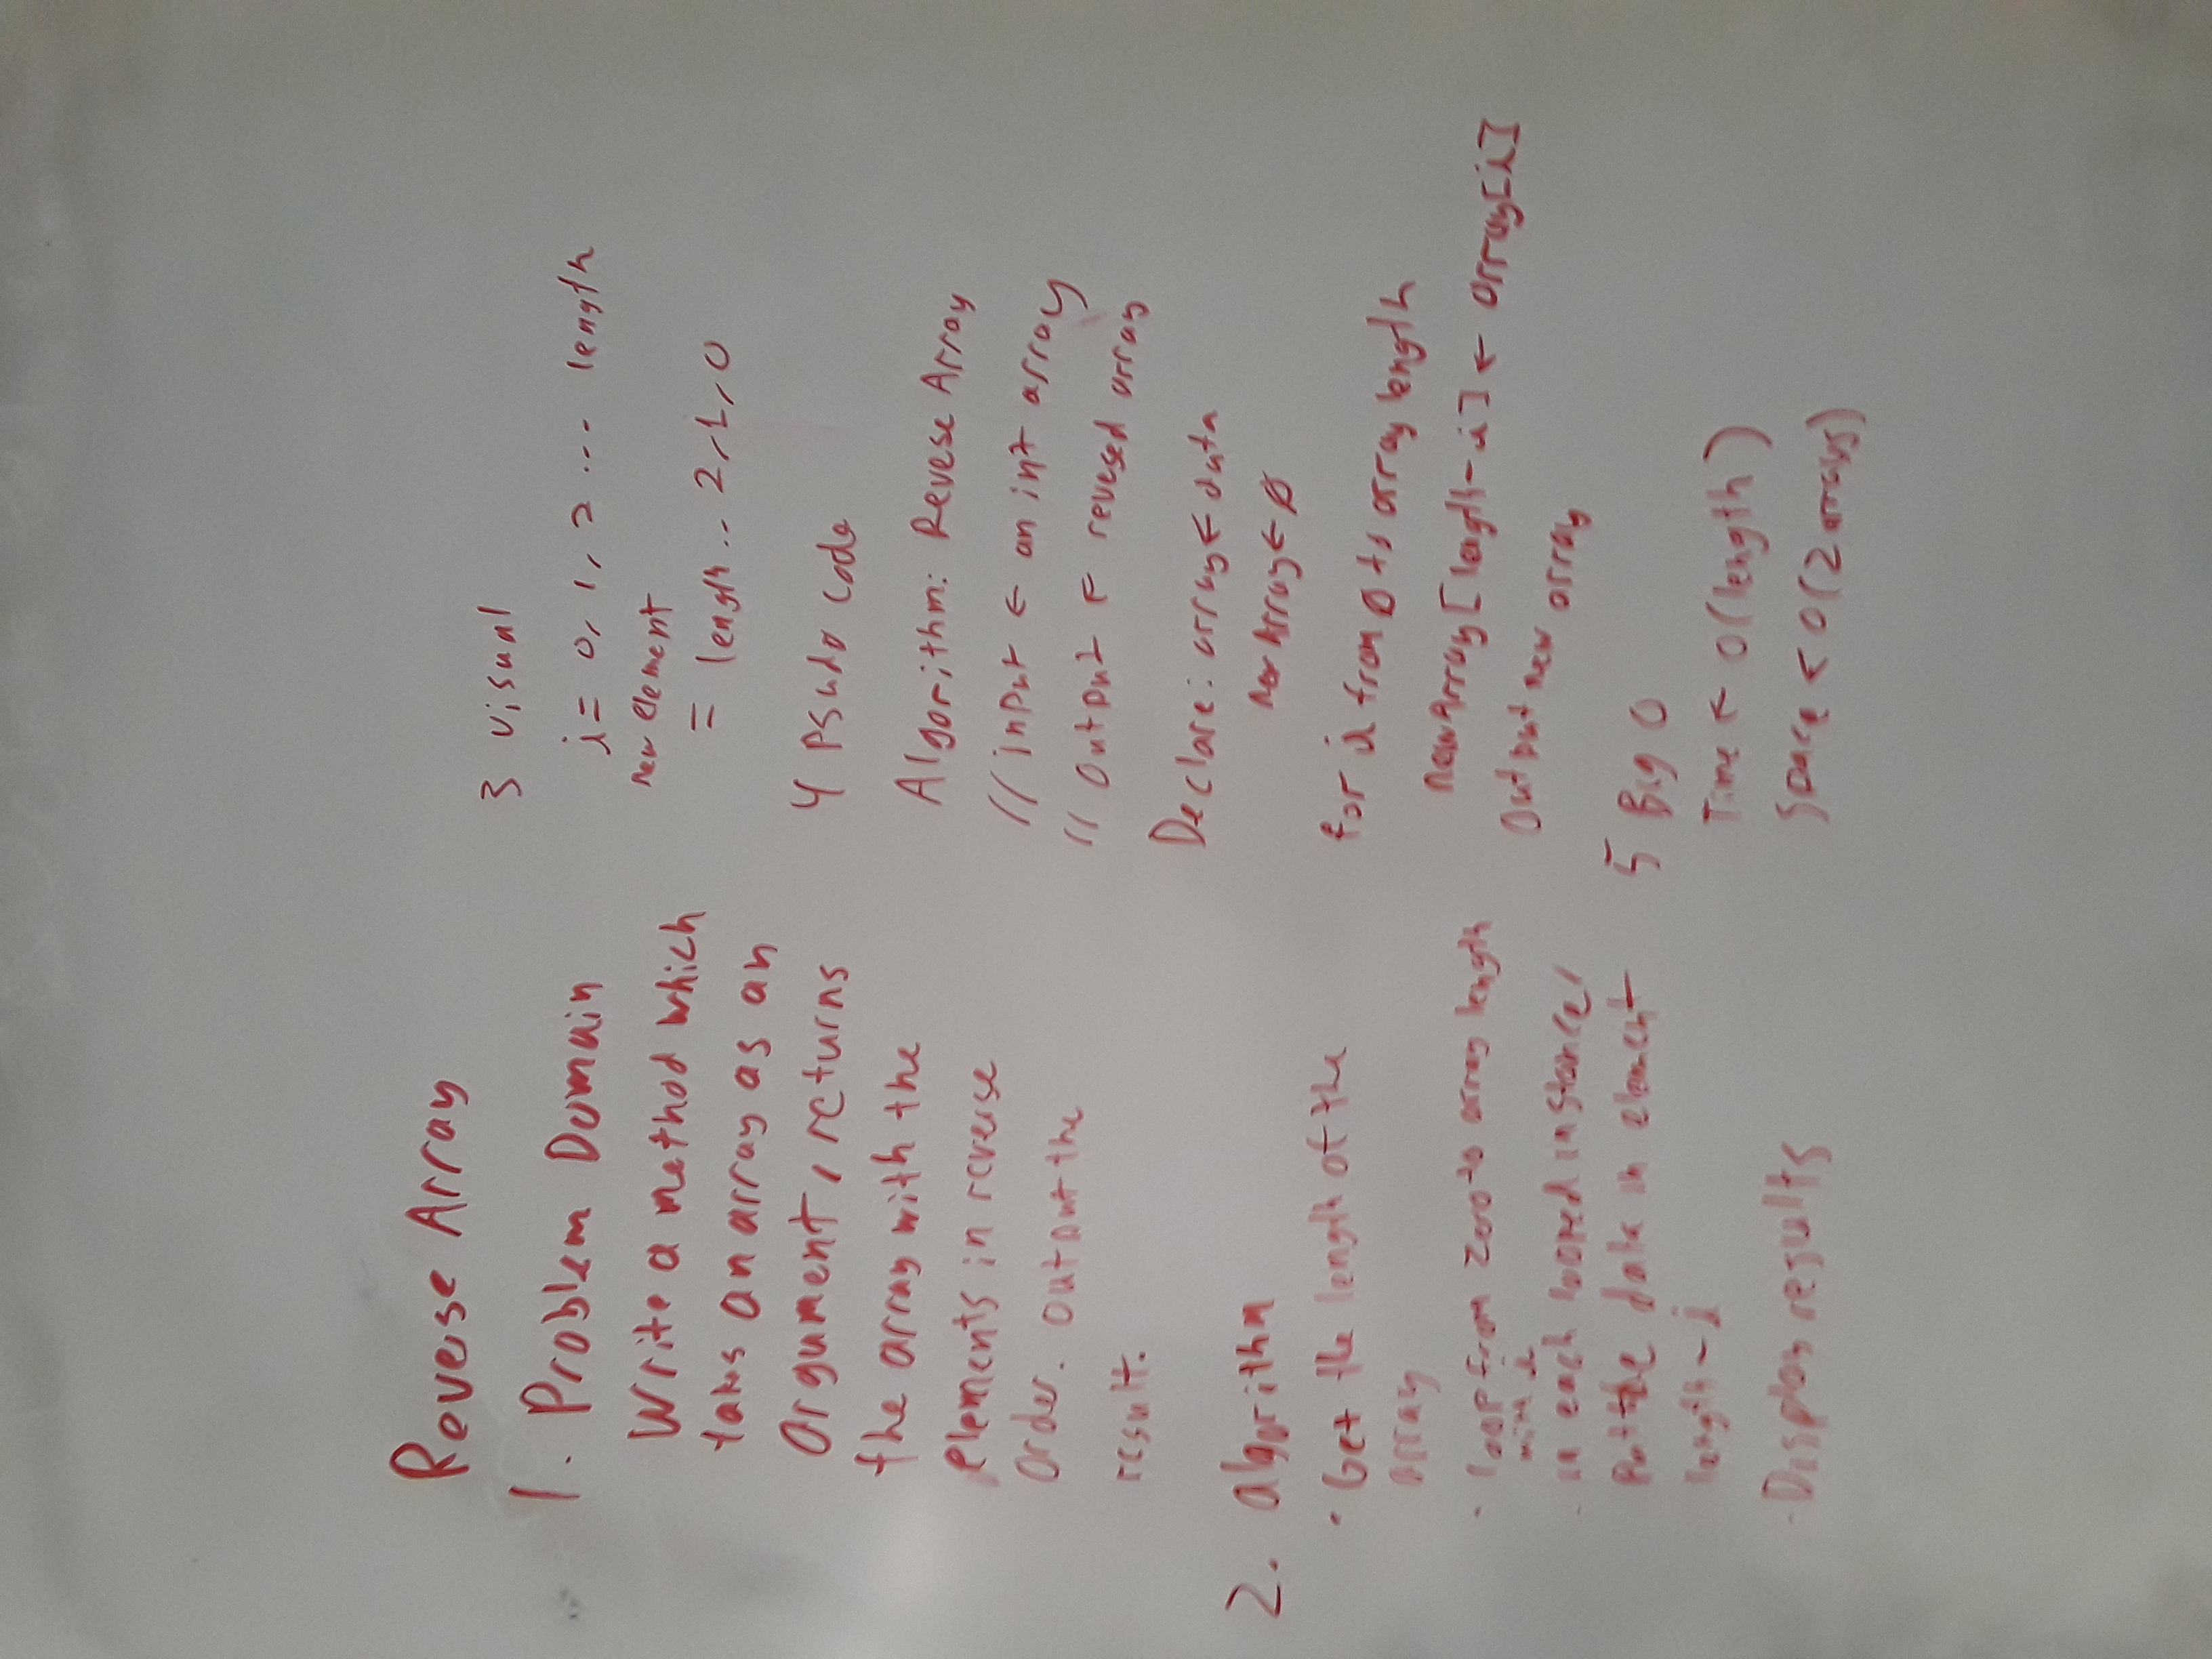 Reverse Array
1. Problem Domain
Write a method which
takes an array as an
argument, returns
the array with the
elements in reverse
order. output the
result.
2. algorithm
· Get the length of the
array
· loop from zero to array length
with i
· in each looped instance,
Put the data in element
length - i
· Display results
3 visual
i = 0, 1, 2 ... length
new element
= length .. 2, 1, 0
4 Psudo code
Algorithm: Revese Array
// input ← an int array
// output ← revesed array
Declare: array ← data
new Array ← Ø
for i from Ø to array length
newArray[length - i] ← array[i]
Output new array
5 Big O
Time ← O(length)
Space < O(2 arrays)